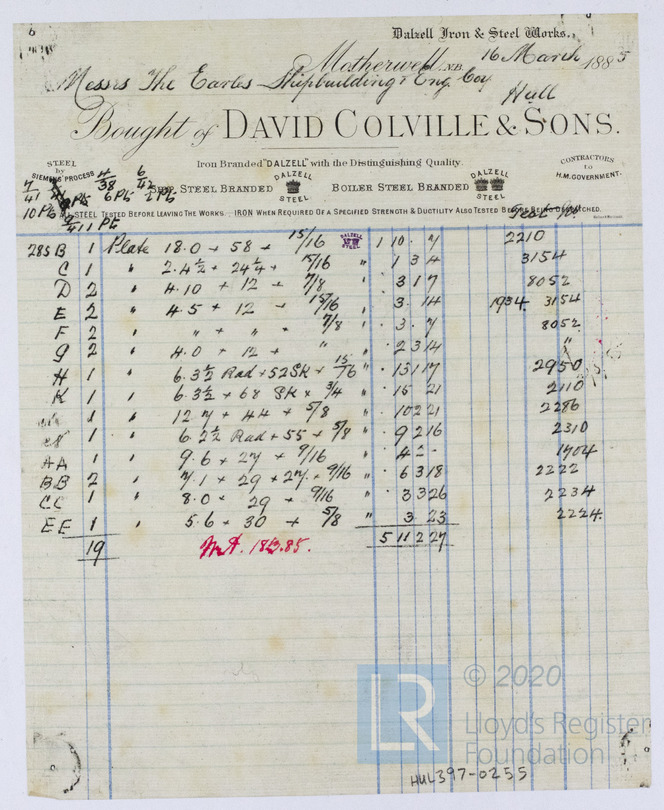 Dalzell Iron & Steel Works.,
Motherwell, N.B. 16 March 1885
Messrs The Earles Shipbuilding & Eng. Coy
Hull
Bought of DAVID COLVILLE & SONS.
Iron Branded "DALZELL" with the Distinguishing Quality.
STEEL by SIEMENS PROCESS
CONTRACTORS TO H.M. GOVERNMENT.
SHIP STEEL BRANDED DALZELL STEEL BOILER STEEL BRANDED DALZELL STEEL
ALL STEEL TESTED BEFORE LEAVING THE WORKS. IRON WHEN REQUIRED OF A SPECIFIED STRENGTH & DUCTILITY ALSO TESTED BEFORE BEING DESPATCHED.
Test Nos
285 B 1 Plate 18.0 + 58 + 15/16 DALZELL STEEL 1 10 . 7 2210
C 1 " 2.4½ + 24¼ + 15/16 " 1 3 4 3154
D 2 " 4.10 + 12 + 7/8 " 3 1 7 8052
E 2 " 4.5 + 12 + 15/16 " 3 . 14 1934. 3154
F 2 " " + " + 7/8 " 3 . 7 8052
G 2 " 4.0 + 12 + " " 2 3 14 "
H 1 " 6.3½ Rad + 52 SK + 15/16 " 15 1 17 2950
K 1 " 6.3½ + 68 SK x 3/4 " 15 21 2110
1 " 12.7 + 44 + 5/8 " 10 2 21 2286
1 " 6.2½ Rad + 55 + 5/8 " 9 2 16 2310
AA 1 " 9.6 + 27 + 9/16 " 4 2 - 1704
BB 2 " 7.1 + 29 + 27 + 9/16 " 6 3 18 2222
CC 1 " 8.0 + 29 + 9/16 " 3 3 26 2234
EE 1 " 5.6 + 30 + 5/8 " 3 23 2224.
19 5 11 2 27
LR © 2020
Lloyd's Register
Foundation
HUL397-0255